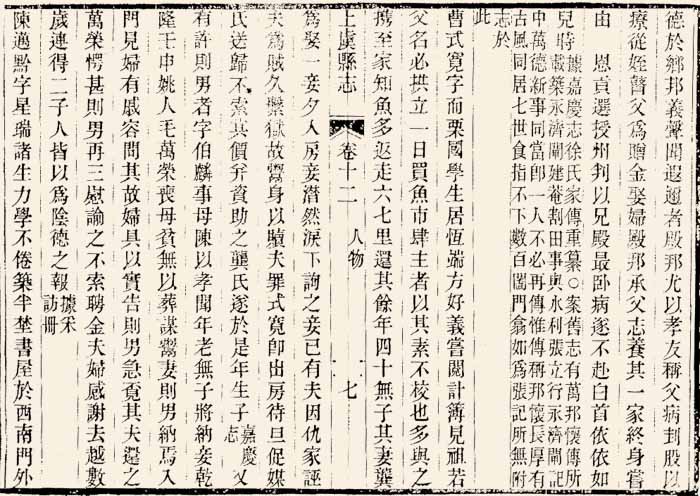 德於鄉邦義聲聞遐邇者殿邦尤以孝友稱父病刲股以
療從姪瞽父爲贈金娶婦殿邦承父志養其一家終身嘗
由 恩貢選授州判以兄殿最卧病遂不赴白首依依如
兒時據嘉慶志徐氏家傳重纂○案舊志有萬邦懷傳所
載築永濟閘建庵割田事與水利張立行永濟閘記
中萬德新事同當卽一人不必再傳惟傳稱邦懷長厚有
古風同居七世食指不下數百闔門翕如爲張記所無附
志於
此
曹式寬字而栗國學生居恆端方好義嘗閱計簿見祖若
父名必拱立一日買魚市肆主者以其素不校也多與之
攜至家知魚多返走六七里還其餘年四十無子其妻龔
上虞縣志 卷十二 人物 七
爲娶一妾夕入房妾潸然淚下詢之妾已有夫因仇家誣
夫爲賊久繫獄故鬻身以贖夫罪式寬卽出房待旦促媒
氏送歸不索其價并資助之龔氏遂於是年生子嘉慶
志又
有許則男者字伯麟事母陳以孝聞年老無子將納妾乾
隆壬申姚人毛萬榮喪母貧無以葬謀鬻妻則男納焉入
門見婦有戚容問其故婦具以實告則男急覓其夫還之
萬榮愕甚則男再三慰諭之不索聘金夫婦感謝去越數
歲連得二子人皆以爲陰德之報據采
訪冊
陳邁黔字星瑞諸生力學不倦築半埜書屋於西南門外